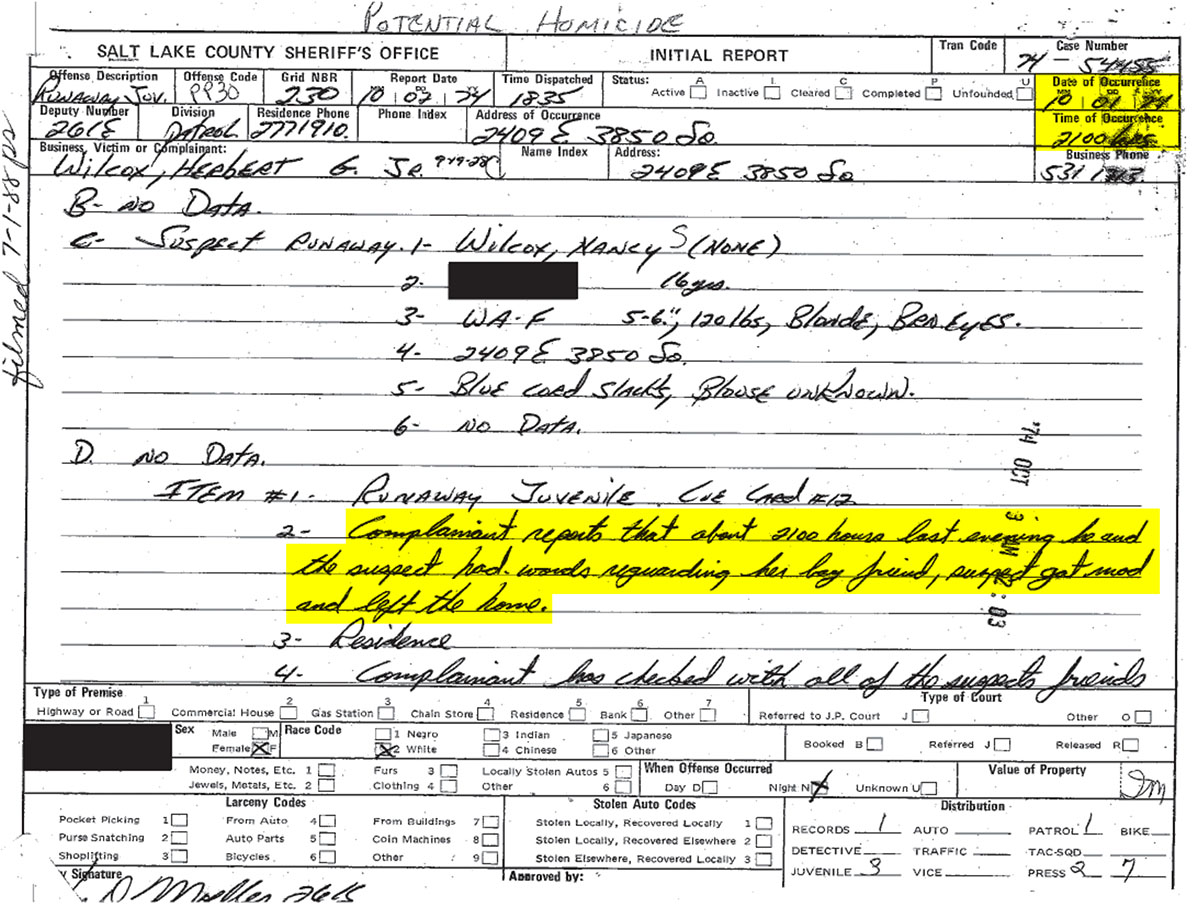 POTENTIAL HOMICIDE
SALT LAKE COUNTY SHERIFF'S OFFICE
INITIAL REPORT
Tran Code
Case Number
74 - 54455
Offense Description
RUNAWAY JUV.
Offense Code
PP30
Grid NBR
230
Report Date
10 02 74
Time Dispatched
1835
Status:
A I C P U
Active Inactive Cleared Completed Unfounded
Date of Occurrence
10 01 74
Deputy Number
261E
Division
PATROL
Residence Phone
2771910.
Phone Index
Address of Occurrence
2409 E 3850 So.
Time of Occurence
2100 hrs
Business Victim or Complainant:
WILCOX, HERBERT G. JR.
Name Index
Address:
2409E 3850 So
Business Phone
531
B- NO DATA.
C- SUSPECT RUNAWAY. 1- WILCOX, NANCY S (NONE)
2- 16yrs.
3- WA-F 5-6", 120 lbs, BLONDE, BRN EYES.
4- 2409 E 3850 So.
5- BLUE CORD SLACKS, BLOUSE UNKNOWN.
6- NO DATA.
D. NO DATA.
ITEM #1- RUNAWAY JUVENILE CUE CARD #12
2- Complainant reports that about 2100 hours last evening he and
the suspect had words reguarding her boy friend, suspect got mad
and left the home.
3- Residence
4- Complainant has checked with all of the suspects friends
filmed 7-1-88 ps
'74 OCT 3 AM 2:03
Type of Premise
Highway or Road 1
Commercial House 2
Gas Station 3
Chain Store 4
Residence 5
Bank 6
Other 7
Type of Court
Referred to J.P. Court J
Other O
Sex Male M
Female X F
Race Code
1 Negro
X 2 White
3 Indian
4 Chinese
5 Japanese
6 Other
Booked B
Referred J
Released R
Money, Notes, Etc. 1
Jewels, Metals, Etc. 2
Furs 3
Clothing 4
Locally Stolen Autos 5
Other 6
When Offense Occurred
Day D
Night N X
Unknown U
Value of Property
Larceny Codes
Pocket Picking 1
Purse Snatching 2
Shoplifting 3
From Auto 4
Auto Parts 5
Bicycles 6
From Buildings 7
Coin Machines 8
Other 9
Stolen Auto Codes
Stolen Locally, Recovered Locally 1
Stolen Locally, Recovered Elsewhere 2
Stolen Elsewhere, Recovered Locally 3
Distribution
RECORDS 1 AUTO PATROL 1 BIKE
DETECTIVE TRAFFIC TAC-SQD.
JUVENILE 3 VICE PRESS 2 7
y Signature
Approved by: